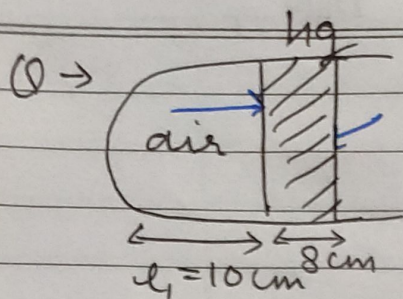 Hg
Q →
air
l₁=10cm 8cm